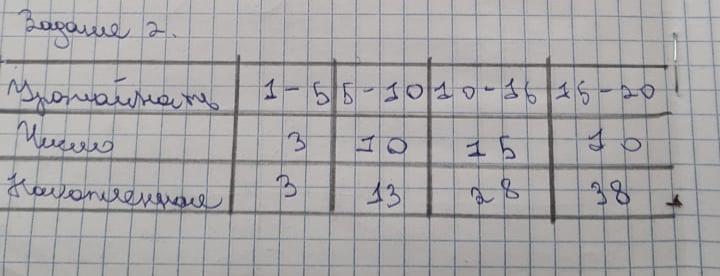 Задание 2.
Урожайность 1-5 5-10 10-15 15-20
Число 3 10 15 10
Накопленная 3 13 28 38